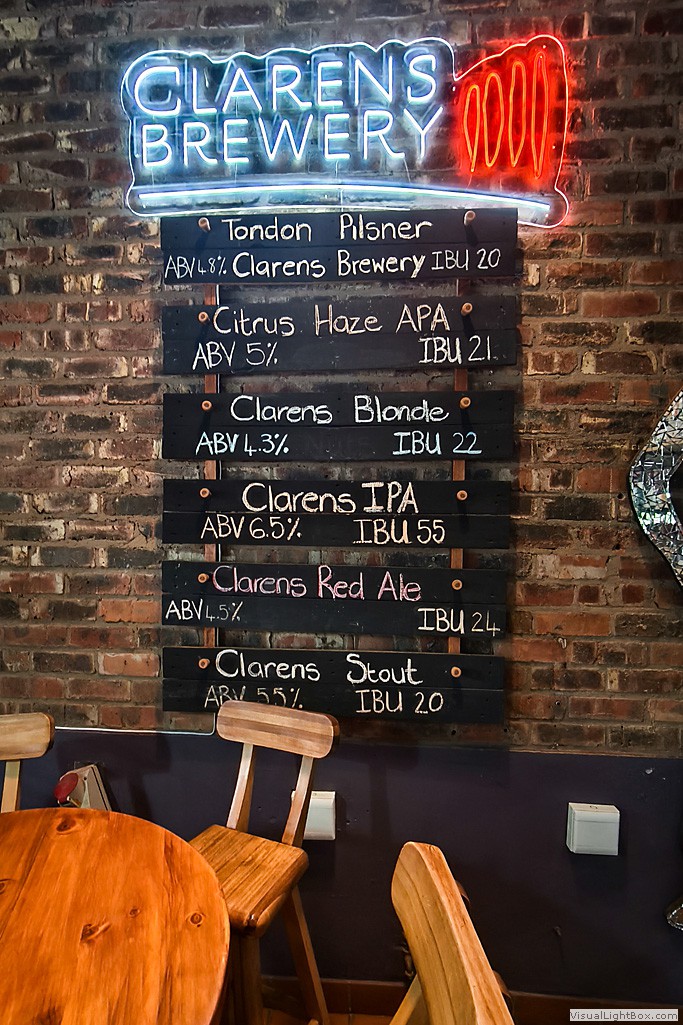 CLARENS
BREWERY
Tondon Pilsner
ABV 4.8% Clarens Brewery IBU 20
Citrus Haze APA
ABV 5% IBU 21
Clarens Blonde
ABV 4.3% IBU 22
Clarens IPA
ABV 6.5% IBU 55
Clarens Red Ale
ABV 4.5% IBU 24
Clarens Stout
ABV 5.5% IBU 20
VisualLightBox.com